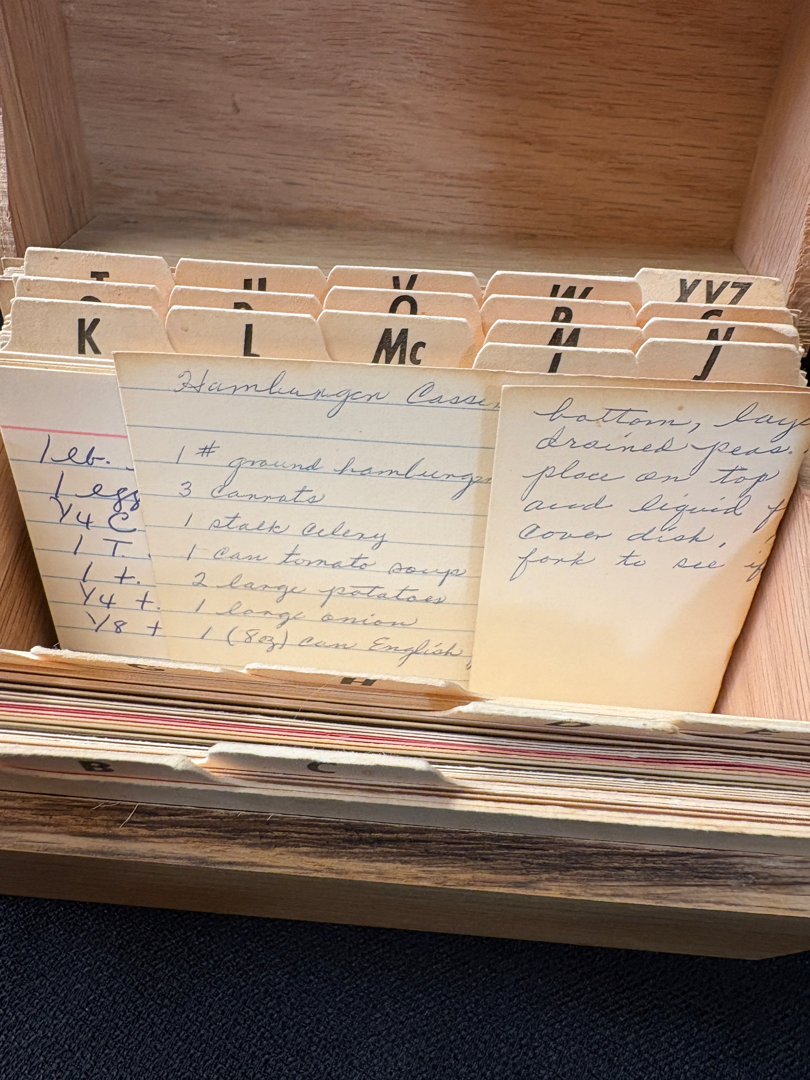 T U V W XYZ
O
K L Mc M N
I J
Hamburger Casse
1 # ground hamburge
3 carrots
1 stalk celery
1 can tomato soup
2 large potatoes
1 large onion
1 (8oz) can English
bottom, laye
drained peas.
place on top
and liquid f
cover dish,
fork to see if
1 lb.
1 egg
1/4 C
1 T.
1 t.
1/4 t.
1/8 t
H
D
B C